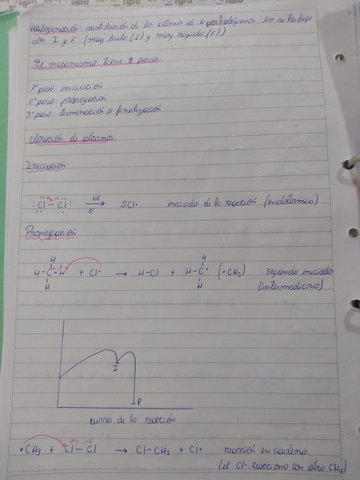 Halogenación: sustitución de los átomos de H por halógenos. No se trabaja
con I y F (muy lento (I) y muy rápido (F))
"El mecanismo tiene 3 pasos"
1° paso iniciación
2° paso propagación
3° paso terminación o finalización
cloración de alcanos
Iniciación:
:Cl-Cl: → 2Cl• iniciador de la reacción (endotérmico)
Propagación
H
H-C-H + Cl• → H-Cl + H-C• (•CH3) segundo iniciador
H H (intermediario)
I
P
curso de la reacción
•CH3 + Cl-Cl → Cl-CH3 + Cl• reacción en cadena
(el Cl• reacciona con otro CH4)